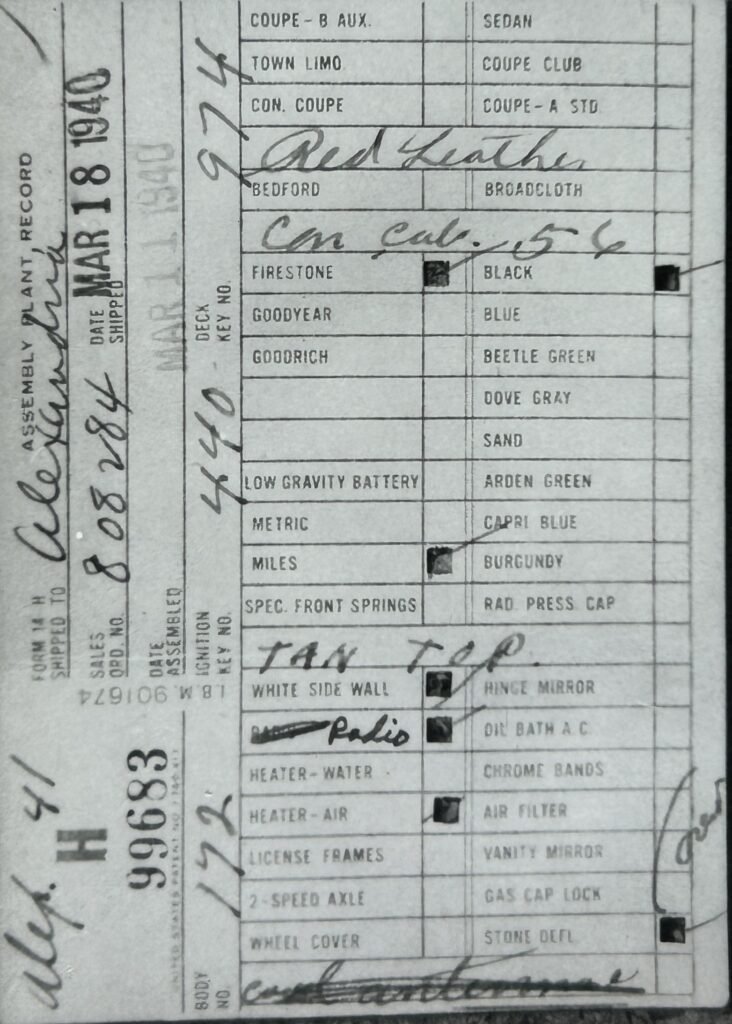 FORM 14 H ASSEMBLY PLANT RECORD
SHIPPED TO Alexandria
SALES ORD. NO. 808284 DATE SHIPPED MAR 18 1940
DATE ASSEMBLED MAR 11 1940
IGNITION KEY NO. 440 DECK KEY NO. 974
Alex. 41
H 99683
I.B.M. 901674
BODY NO. 172
COUPE-B AUX. SEDAN
TOWN LIMO. COUPE CLUB
CON. COUPE COUPE-A STD.
Red Leather
BEDFORD BROADCLOTH
Con Cab. 56
FIRESTONE BLACK
GOODYEAR BLUE
GOODRICH BEETLE GREEN
DOVE GRAY
SAND
LOW GRAVITY BATTERY ARDEN GREEN
METRIC CAPRI BLUE
MILES BURGUNDY
SPEC. FRONT SPRINGS RAD. PRESS CAP
TAN TOP.
WHITE SIDE WALL HINGE MIRROR
Radio OIL BATH A.C.
HEATER-WATER CHROME BANDS
HEATER-AIR AIR FILTER
LICENSE FRAMES VANITY MIRROR
2-SPEED AXLE GAS CAP LOCK
WHEEL COVER STONE DEFL.
antennae